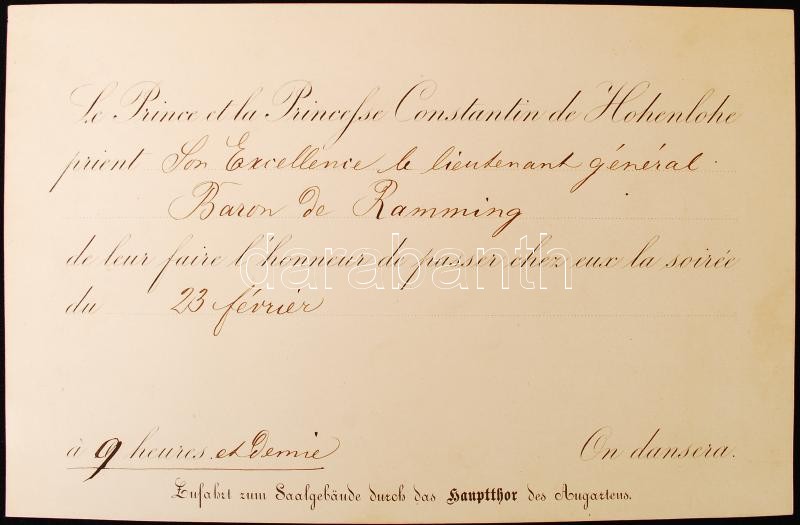 Le Prince et la Princesse Constantin de Hohenlohe
prient Son Excellence le lieutenant général
Baron de Ramming
de leur faire l'honneur de passer chez eux la soirée
darabanth
du 23 février
à 9 heures et demie On dansera.
Zufahrt zum Saalgebäude durch das Hauptthor des Augartens.